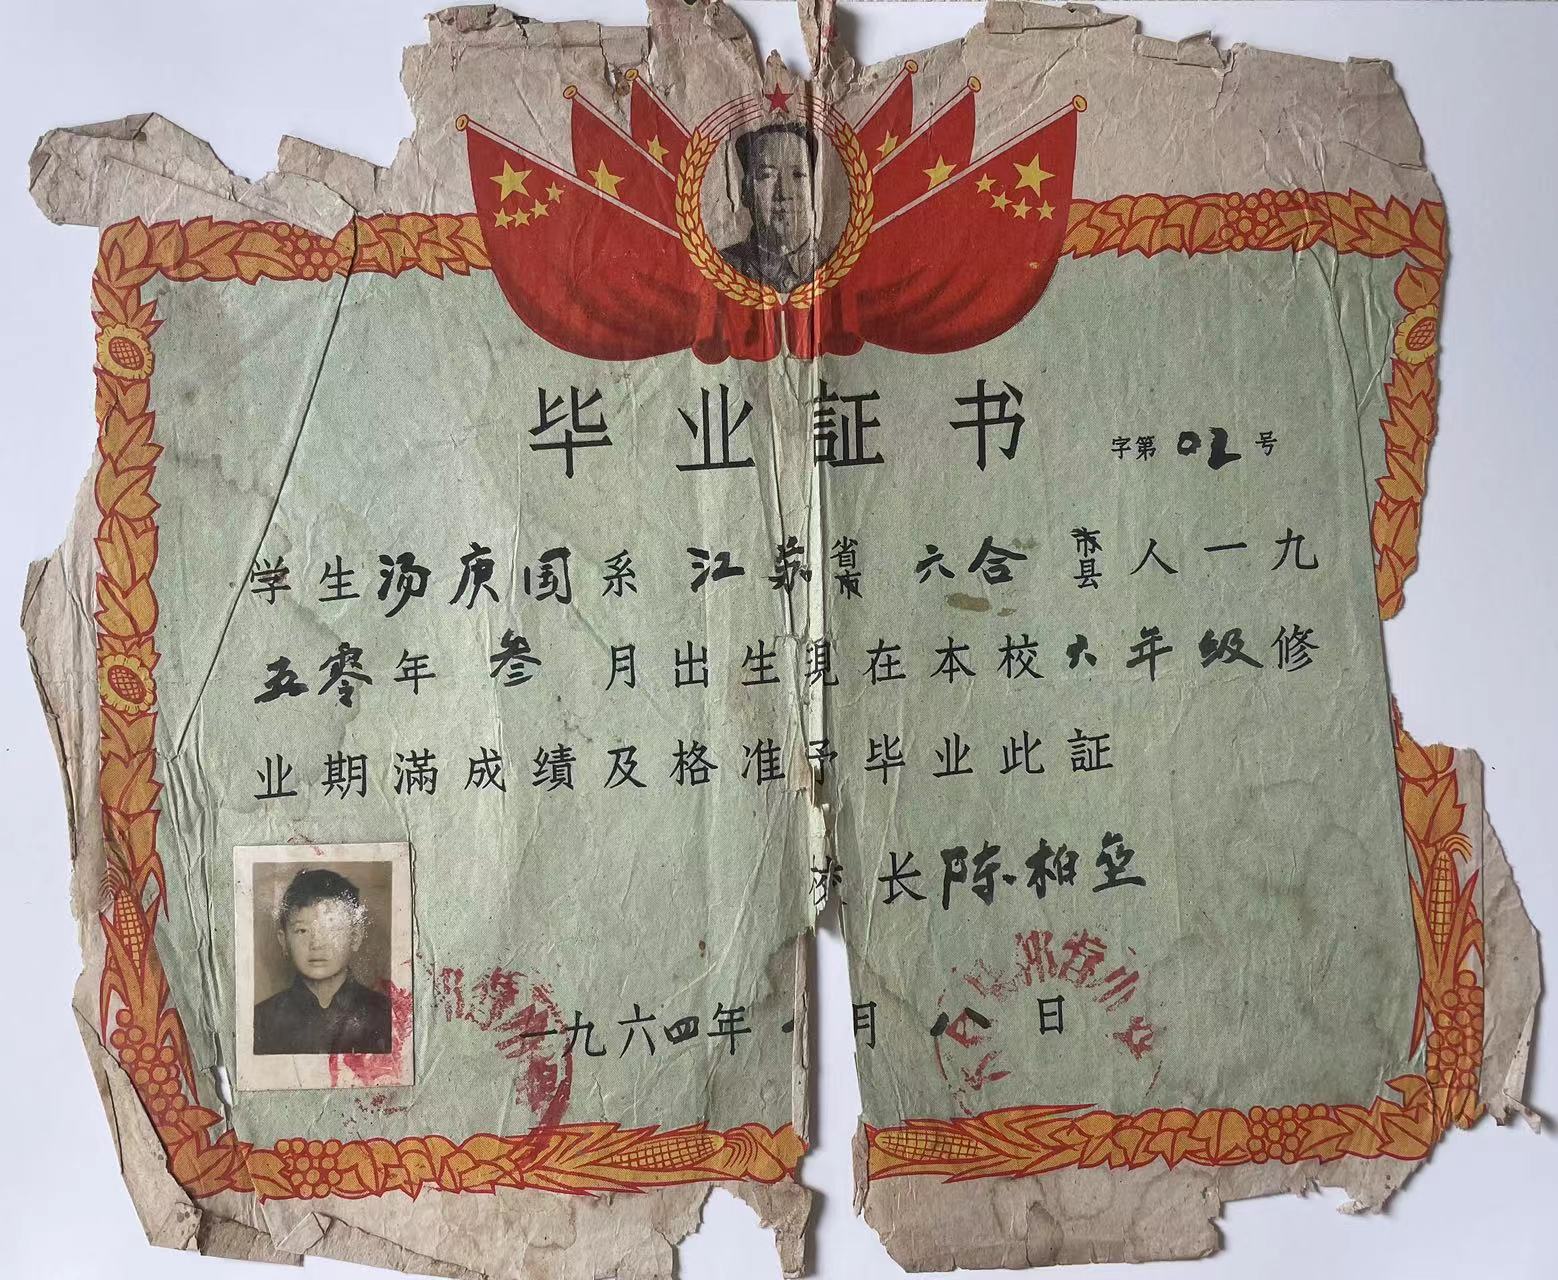 毕业証书
字第02号
学生汤庚国系江苏省市六合市县人一九
五零年叁月出生現在本校六年级修
业期满成绩及格准予毕业此証
校长陈柏
一九六四年 月八日